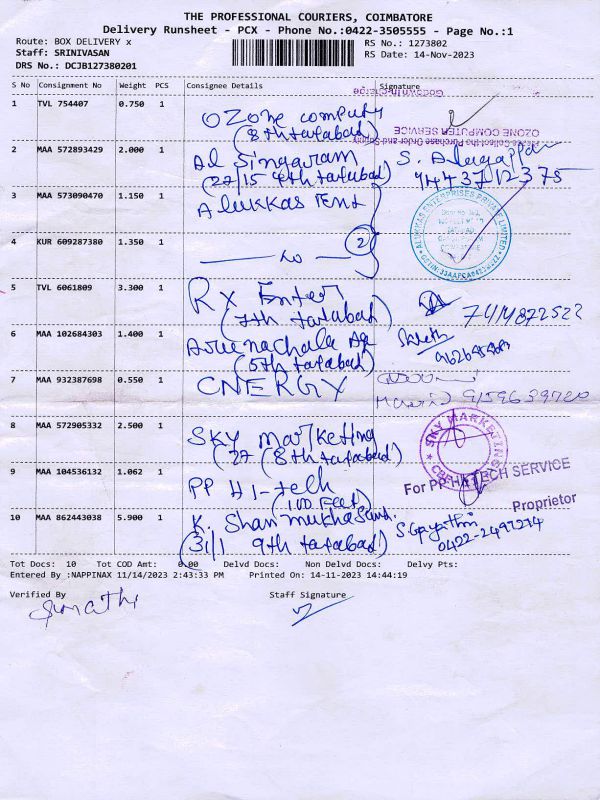 THE PROFESSIONAL COURIERS, COIMBATORE
Delivery Runsheet - PCX - Phone No.:0422-3505555 - Page No.:1
Route: BOX DELIVERY x
RS No.: 1273802
Staff: SRINIVASAN
RS Date: 14-Nov-2023
DRS No.: DCJB127380201
S No Consignment No Weight PCS Consignee Details Signature
1 TVL 754407 0.750 1 OZone
(8th tatabad)
OZONE COMPUTER SERVICE
2 MAA 572893429 2.000 1 AL Singaram S. Alagappan
(22/15 4th tatabad) 9443712375
3 MAA 573090470 1.150 1 Alukkas Ent
ALUKKAS ENTERPRISES PRIVATE LIMITED
4 KUR 609287380 1.350 1 — do — 2
5 TVL 6061809 3.300 1 RX Enter
(7th tatabad)
6 MAA 102684303 1.400 1 Arunachala Ag
(5th tatabad)
7 MAA 932387698 0.550 1 CNERGY
9159639720
8 MAA 572905332 2.500 1 SKY Marketing
(27 (8th tatabad)
SKY MARKETING
9 MAA 104536132 1.062 1 PP HI-tech
(100 Feet)
For PP HI-TECH SERVICE
Proprietor
10 MAA 862443038 5.900 1 K. Shanmukha S. Gayathri
(31/1 9th tatabad)
Tot Docs: 10 Tot COD Amt: 0.00 Delvd Docs: Non Delvd Docs: Delvy Pts:
Entered By :NAPPINAX 11/14/2023 2:43:33 PM Printed On: 14-11-2023 14:44:19
Verified By Staff Signature